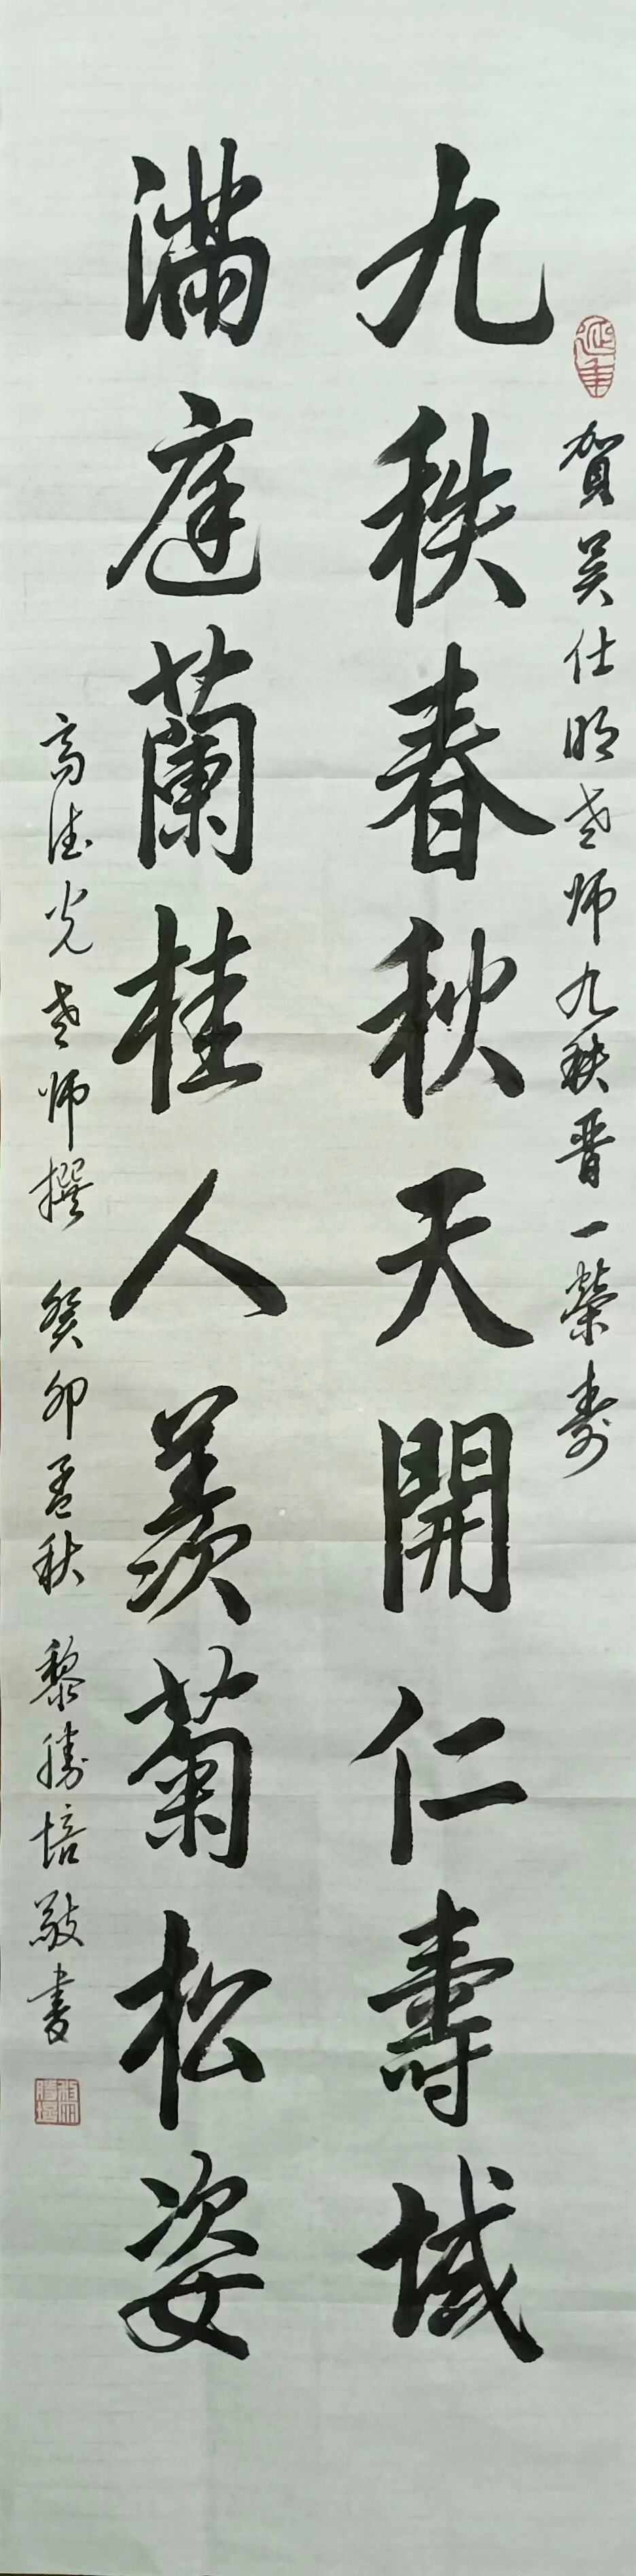 延年
賀吴仕明老师九秩晋一荣寿
九秩春秋天開仁壽域
滿庭蘭桂人羨菊松姿
高德光老师撰 癸卯孟秋 黎勝培敬書